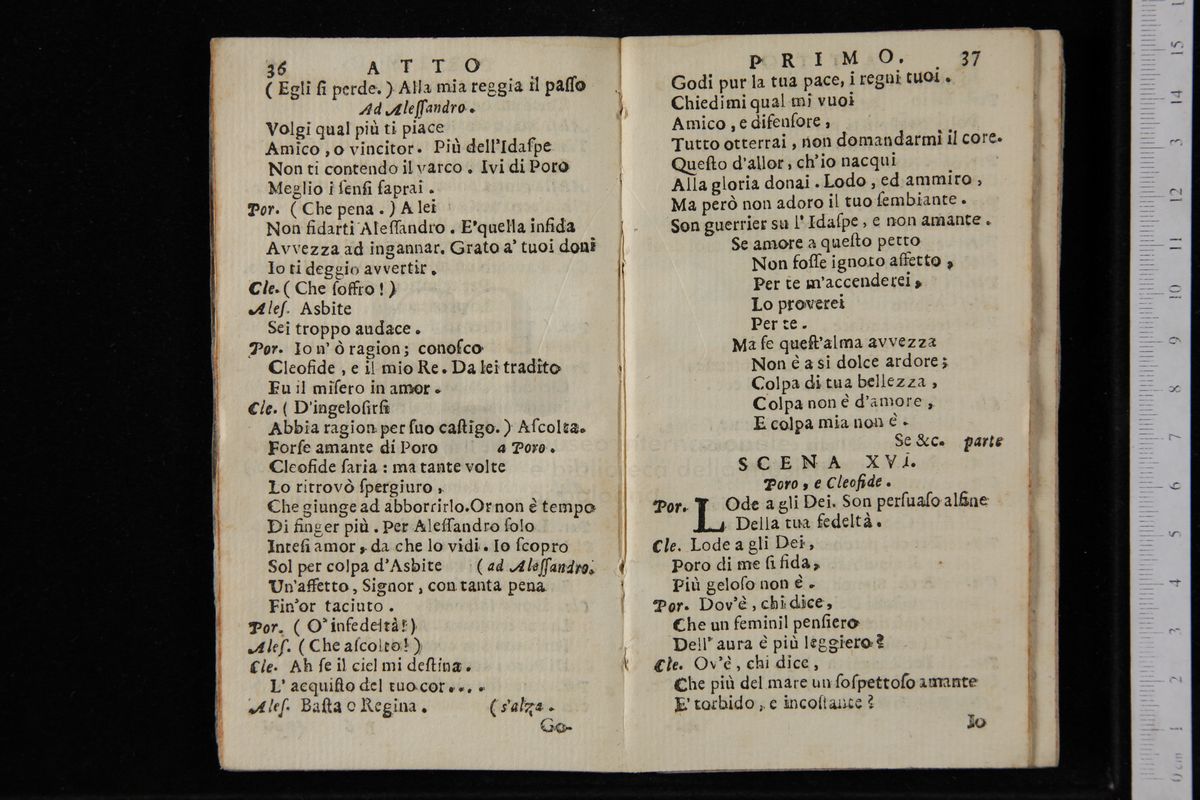 36 ATTO
( Egli ſi perde. ) Alla mia reggia il paſſo
Ad Aleſſandro.
Volgi qual più ti piace
Amico , o vincitor. Più dell'Idaſpe
Non ti contendo il varco . Ivi di Poro
Meglio i ſenſi ſaprai .
Por. ( Che pena . ) A lei
Non fidarti Aleſſandro . E' quella infida
Avvezza ad ingannar. Grato a' tuoi doni
Io ti deggio avvertir.
Cle. ( Che ſoffro ! )
Aleſ. Asbite
Sei troppo audace .
Por. Io n' ò ragion ; conoſco
Cleofide , e il mio Re. Da lei tradito
Fu il miſero in amor.
Cle. ( D'ingeloſirſi
Abbia ragion per ſuo caſtigo. ) Aſcolta.
Forſe amante di Poro a Poro.
Cleofide ſaria : ma tante volte
Lo ritrovò ſpergiuro ,
Che giunge ad abborrirlo.Or non è tempo
Di finger più . Per Aleſſandro ſolo
Inteſi amor , da che lo vidi . Io ſcopro
Sol per colpa d'Asbite ( ad Aleſſandro.
Un'affetto , Signor , con tanta pena
Fin'or taciuto .
Por. ( O' infedeltà! )
Aleſ. ( Che aſcolto! )
Cle. Ah ſe il ciel mi deſtina .
L' acquiſto del tuo cor....
Aleſ. Baſta o Regina . ( s'alza .
Go-
PRIMO. 37
Godi pur la tua pace, i regni tuoi .
Chiedimi qual mi vuoi
Amico , e difenſore ,
Tutto otterrai , non domandarmi il core.
Queſto d'allor , ch'io nacqui
Alla gloria donai . Lodo , ed ammiro ,
Ma però non adoro il tuo ſembiante .
Son guerrier su l' Idaſpe , e non amante .
Se amore a queſto petto
Non foſſe ignoto affetto ,
Per te m'accenderei ,
Lo proverei
Per te .
Ma ſe queſt'alma avvezza
Non è a si dolce ardore ;
Colpa di tua bellezza ,
Colpa non è d'amore ,
E colpa mia non è .
Se &c. parte
SCENA XVI.
Poro , e Cleofide .
Por. LOde a gli Dei. Son perſuaſo alfine
Della tua fedeltà .
Cle. Lode a gli Dei ,
Poro di me ſi fida ,
Più geloſo non è .
Por. Dov'è , chi dice ,
Che un feminil penſiero
Dell' aura è più leggiero ?
Cle. Ov'è , chi dice ,
Che più del mare un ſoſpettoſo amante
E' torbido , e incoſtante ?
Io